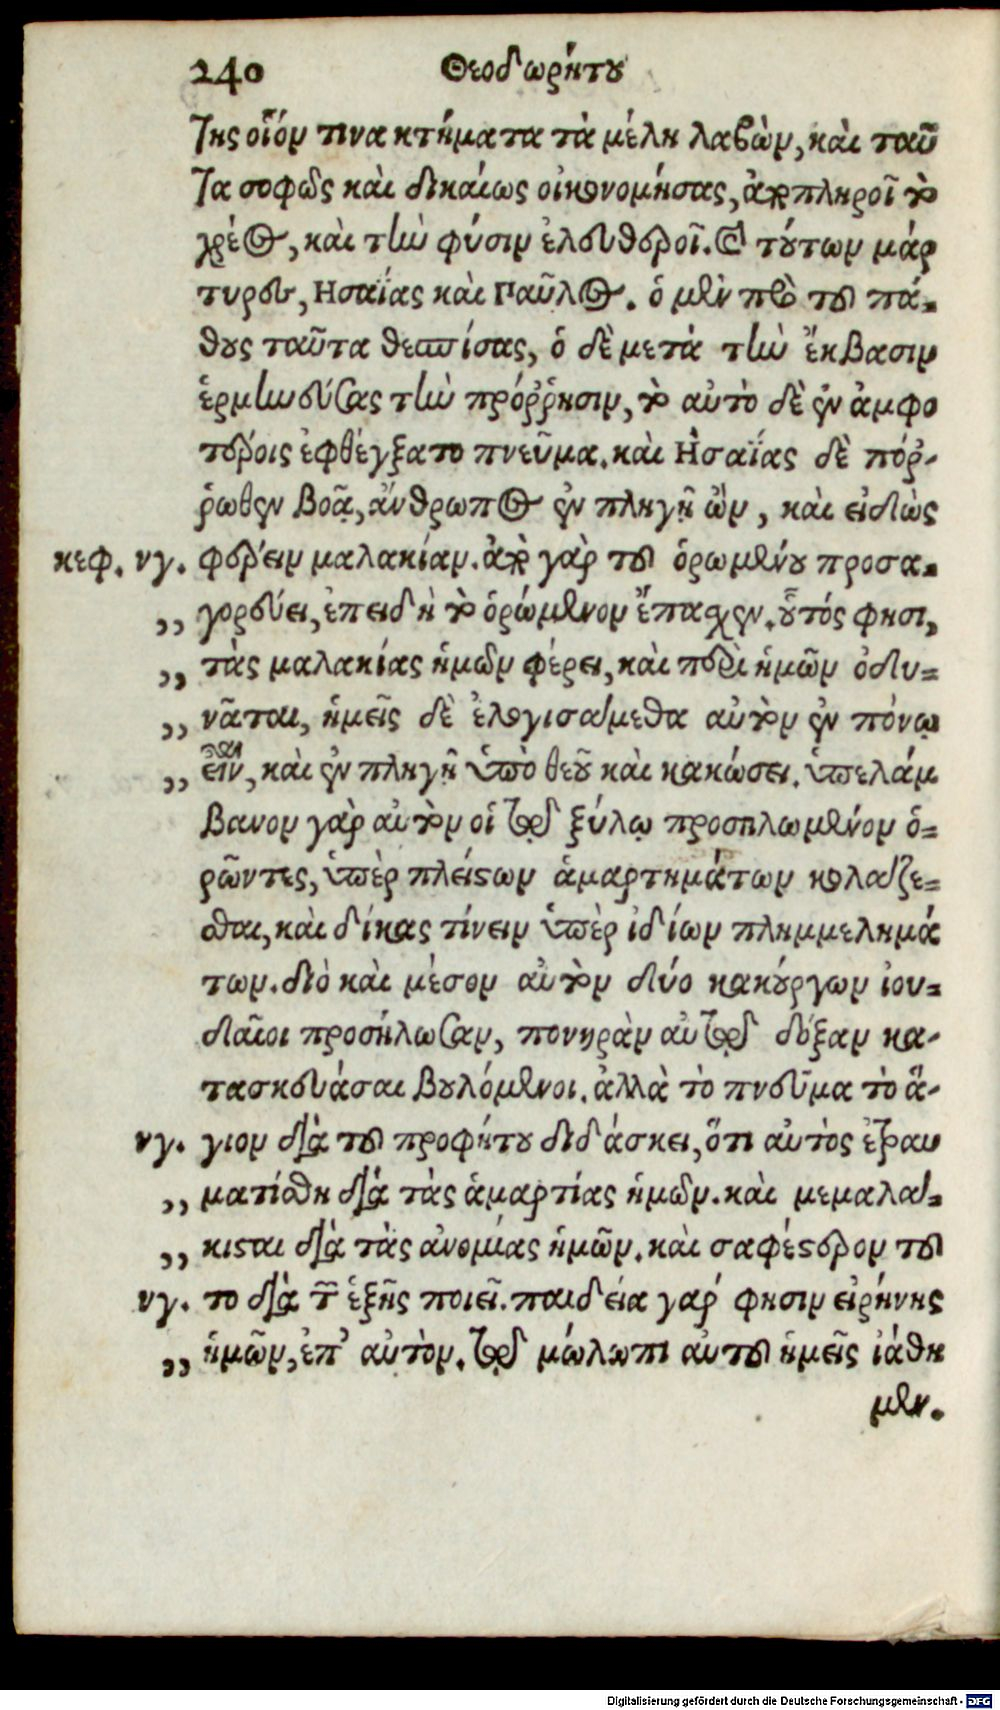 240 Θεοδωρήτου
της οἷόν τινα κτήματα τὰ μέλη λαβὼν, καὶ ταῦ
τα σοφῶς καὶ δικαίως οἰκονομήσας, ἀποπληροῖ τὸ
χρέος, καὶ τὴν φύσιν ἐλευθεροῖ. καὶ τούτων μάρ
τυρες, Ησαΐας καὶ Παῦλος. ὁ μὲν πρὸ τοῦ πά-
θους ταῦτα θεσπίσας, ὁ δὲ μετὰ τὴν ἔκβασιν
ἑρμηνεύσας τὴν πρόῤῥησιν, τὸ αὐτὸ δὲ ἐν ἀμφο
τέροις ἐφθέγξατο πνεῦμα. καὶ Ἡσαΐας δὲ πόῤ-
ῥωθεν βοᾷ, ἄνθρωπος ἐν πληγῇ ὢν, καὶ εἰδὼς
κεφ. νγ. φέρειν μαλακίαν. ἀπὸ γὰρ τοῦ ὁρωμένου προσα-
,, γορεύει, ἐπειδὴ τὸ ὁρώμενον ἔπασχεν. οὗτός φησι,
,, τὰς μαλακίας ἡμῶν φέρει, καὶ περὶ ἡμῶν ὀδυ-
,, νᾶται, ἡμεῖς δὲ ἐλογισάμεθα αὐτὸν ἐν πόνῳ
,, εἶναι, καὶ ἐν πληγῇ ὑπὸ θεοῦ καὶ κακώσει. ὑπελάμ
βανον γὰρ αὐτὸν οἱ τῷ ξύλῳ προσηλωμένον ὁ-
ρῶντες, ὑπὲρ πλείστων ἁμαρτημάτων κολάζε-
σθαι, καὶ δίκας τίνειν ὑπὲρ ἰδίων πλημμελημά
των. διὸ καὶ μέσον αὐτὸν δύο κακούργων ἰου-
δαῖοι προσήλωσαν, πονηρὰν αὐτῷ δόξαν κα-
τασκευάσαι βουλόμενοι. ἀλλὰ τὸ πνεῦμα τὸ ἅ-
νγ. γιον διὰ τοῦ προφήτου διδάσκει, ὅτι αὐτὸς ἐτραυ
,, ματίσθη διὰ τὰς ἁμαρτίας ἡμῶν. καὶ μεμαλά-
,, κισται διὰ τὰς ἀνομίας ἡμῶν. καὶ σαφέστερον τοῦ
νγ. το διὰ τῶν ἑξῆς ποιεῖ. παιδεία γάρ φησιν εἰρήνης
,, ἡμῶν, ἐπ' αὐτόν. τῷ μώλωπι αὐτοῦ ἡμεῖς ἰάθη
μεν.
Digitalisierung gefördert durch die Deutsche Forschungsgemeinschaft - DFG